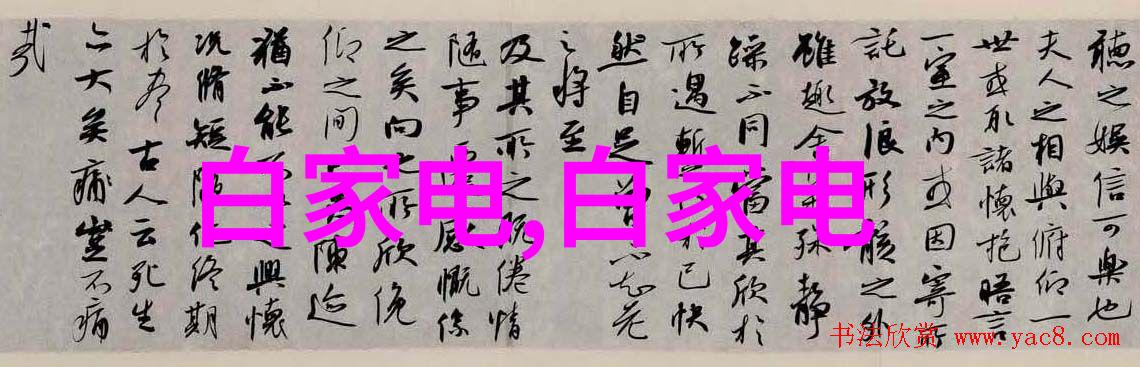 聽之娛信可樂也
夫人之相與俯仰一
世或取諸懷抱晤言
一室之內或因寄所
託放浪形骸之外
雖趣舍殊靜
躁不同當其欣於
所遇暫己快
然自足不知老
之將至
及其所之既倦情
隨事遷感慨係
之矣向之所欣俛
仰之間陳迹
猶不能之興懷
況脩短隨化終期
於盡古人云死生
亦大矣痛豈不痛
哉
白家电,白家电
书法欣赏 www.yac8.com